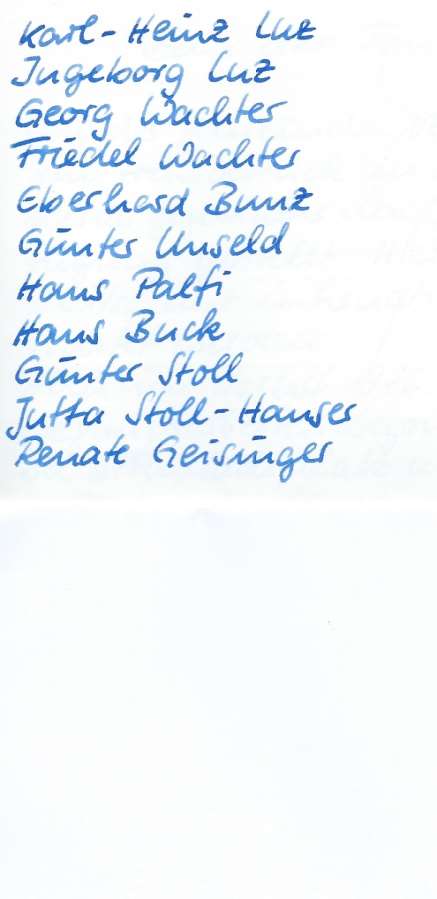 Karl-Heinz Luz
Ingeborg Luz
Georg Wachter
Friedel Wachter
Eberhard Bunz
Günter Unseld
Hans Palfi
Hans Buck
Günter Stoll
Jutta Stoll-Hauser
Renate Geisinger